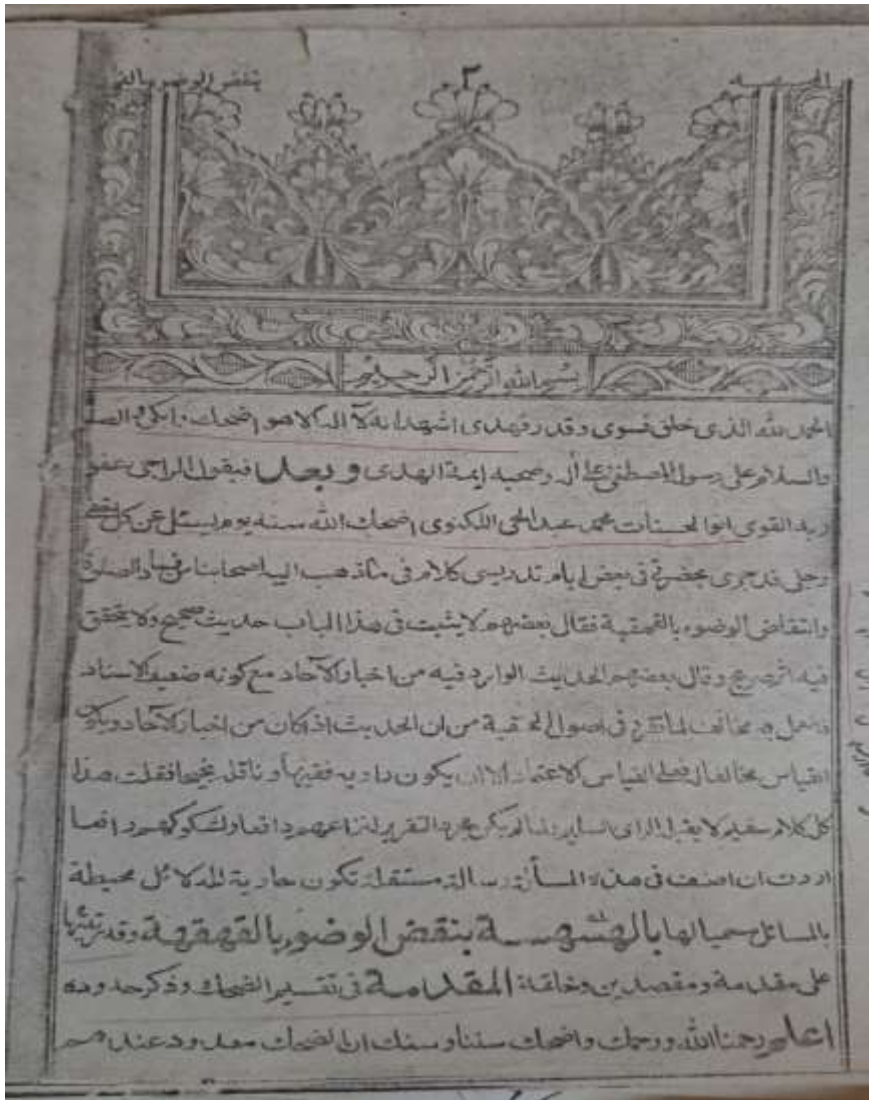 الهسهسة ٢ بنقض الوضوء بالقه
بسم الله الرحمن الرحيم
الحمد لله الذي خلق فسوى وقدر فهدى اشهد انه لا اله الا هو اضحك وابكى والصلوة
والسلام على رسوله المصطفى وعلى آله وصحبه ائمة الهدى وبعد فيقول الراجى عفو
ربه القوى ابو الحسنات محمد عبد الحى اللكنوى اضحك الله سنه يوم يسئل عن كل
وجلى قد جرى بحضرتى فى بعض ايام تدريسى كلام فى ما ذهب اليه اصحابنا من فساد الصلوة
وانتقاض الوضوء بالقهقهة فقال بعضهم لا يثبت فى هذا الباب حديث صحيح ولا يتحقق
فيه اثر صريح وقال بعضهم الحديث الوارد فيه من اخبار الآحاد مع كونه ضعيف الاسناد
والعمل به مخالف لما تقرر فى اصول الحنفية من ان الحديث اذا كان من اخبار الآحاد ويكون
القياس مخالفا له فعلى القياس الاعتماد الا ان يكون راويه فقيها و ناقله فقلت هذا
كل كلام سفيه لا يقبله الراى السليم ولما لم يكن مجرد التقرير لنزاعهم دافعا ولشكوكهم رافعا
اردت ان اصنف فى هذه المسألة رسالة مستقلة تكون حاوية للدلائل محيطة
بالمسائل مسميا لها بالهسهسة بنقض الوضوء بالقهقهة وقد رتبتها
على مقدمة ومقصدين وخاتمة المقدمة فى تفسير الضحك وذكر حدوده
اعلم رحمنا الله ورحمك واضحك سننا وسنك ان الضحك معدود عندهم